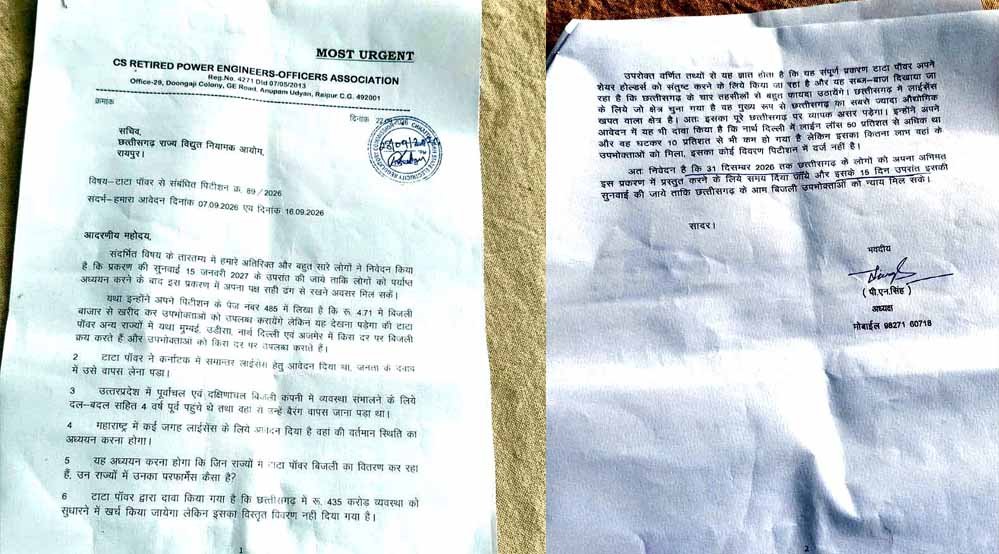 MOST URGENT
CS RETIRED POWER ENGINEERS-OFFICERS ASSOCIATION
Reg.No. 4271 Dtd 07/05/2013
Office-29, Doongaji Colony, GE Road, Anupam Udyan, Raipur C.G. 492001
क्रमांक
दिनांक 22.09.2026
सचिव,
छत्तीसगढ़ राज्य विद्युत नियामक आयोग,
रायपुर।
विषय–टाटा पॉवर से संबंधित पिटीशन क्र. 89/2026
संदर्भ–हमारा आवेदन दिनांक 07.09.2026 एवं दिनांक 16.09.2026
आदरणीय महोदय,
संदर्भित विषय के तारतम्य में हमारे अतिरिक्त और बहुत सारे लोगों ने निवेदन किया
है कि प्रकरण की सुनवाई 15 जनवरी 2027 के उपरांत की जाये ताकि लोगों को पर्याप्त
अध्ययन करने के बाद इस प्रकरण में अपना पक्ष सही ढंग से रखने अवसर मिल सकें।
यथा इन्होंने अपने पिटीशन के पेज नंबर 485 में लिखा है कि रू. 4.71 में बिजली
बाजार से खरीद कर उपभोक्ताओं को उपलब्ध करायेंगे लेकिन यह देखना पड़ेगा की टाटा
पॉवर अन्य राज्यों में यथा मुम्बई, उडीसा, नार्थ दिल्ली एवं अजमेर में किस दर पर बिजली
क्रय करते हैं और उपभोक्ताओं को किस दर पर उपलब्ध कराते हैं।
2 टाटा पॉवर ने कर्नाटक में समान्तर लाईसेंस हेतु आवेदन दिया था, जनता के दबाव
में उसे वापस लेना पड़ा।
3 उत्तरप्रदेश में पूर्वांचल एवं दक्षिणांचल बिजली कंपनी में व्यवस्था संभालने के लिये
दल–बदल सहित 4 वर्ष पूर्व पहुंचे थे तथा वहा से उन्हें बैरंग वापस जाना पड़ा था।
4 महाराष्ट्र में कई जगह लाईसेंस के लिये आवेदन दिया है वहां की वर्तमान स्थिति का
अध्ययन करना होगा।
5 यह अध्ययन करना होगा कि जिन राज्यों में टाटा पॉवर बिजली का वितरण कर रहा
हैं, उन राज्यों में उनका परफार्मेंस कैसा है?
6 टाटा पॉवर द्वारा दावा किया गया है कि छत्तीसगढ़ में रू. 435 करोड़ व्यवस्था को
सुधारने में खर्च किया जायेगा लेकिन इसका विस्तृत विवरण नहीं दिया गया है।
1
उपरोक्त वर्णित तथ्यों से यह ज्ञात होता है कि यह संपूर्ण प्रकरण टाटा पॉवर अपने
शेयर होल्डर्स को संतुष्ट करने के लिये किया जा रहा है और यह सब्ज–बाज़ दिखाया जा
रहा है कि छत्तीसगढ़ के चार तहसीलों से बहुत फायदा उठायेंगे। छत्तीसगढ़ में लाईसेंस
के लिये जो क्षेत्र चुना गया है यह मुख्य रूप से छत्तीसगढ़ का सबसे ज्यादा औद्योगिक
खपत वाला क्षेत्र है। अतः इसका पूरे छत्तीसगढ़ पर व्यापक असर पड़ेगा। इन्होंने अपने
आवेदन में यह भी दावा किया है कि नार्थ दिल्ली में लाईन लॉस 50 प्रतिशत से अधिक था
और वह घटकर 10 प्रतिशत से भी कम हो गया है लेकिन इसका कितना लाभ वहां के
उपभोक्ताओं को मिला, इसका कोई विवरण पिटीशन में दर्ज नहीं है।
अतः निवेदन है कि 31 दिसम्बर 2026 तक छत्तीसगढ़ के लोगों को अपना अभिमत
इस प्रकरण में प्रस्तुत करने के लिये समय दिया जाये और इसके 15 दिन उपरांत इसकी
सुनवाई की जाये ताकि छत्तीसगढ़ के आम बिजली उपभोक्ताओं को न्याय मिल सकें।
सादर।
भवदीय
(पी.एन.सिंह)
अध्यक्ष
मोबाईल 98271 60718
2